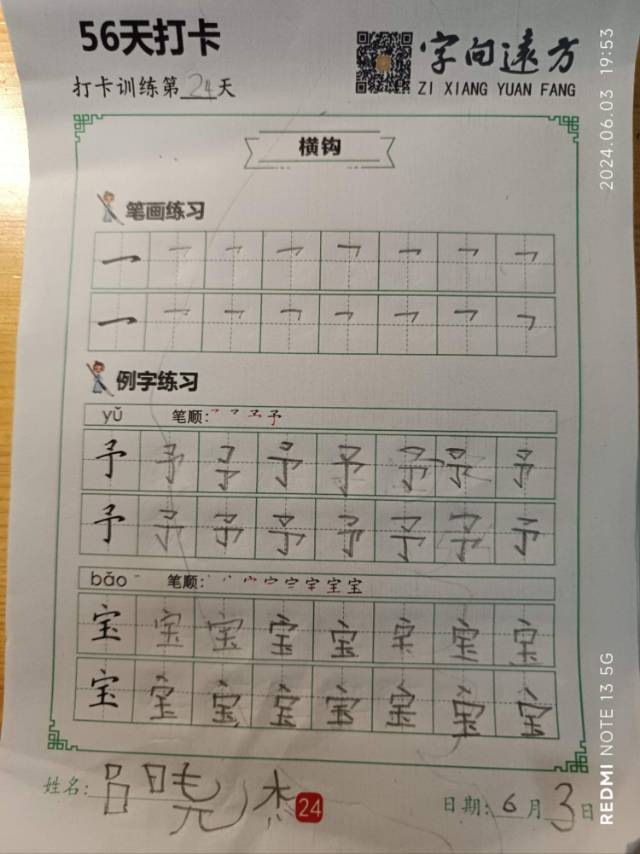 56天打卡
字向远方
ZI XIANG YUAN FANG
打卡训练第24天
横钩
笔画练习
例字练习
yǔ 笔顺:
予 予 予 予 予 予 予 予
予 予 予 予 予 予 予 予
bǎo 笔顺:
宝 宝 宝 宝 宝 宝 宝 宝
宝 宝 宝 宝 宝 宝 宝 宝
姓名: 吕晓杰 24 日期: 6月3日
2024.06.03 19:53
REDMI NOTE 13 5G